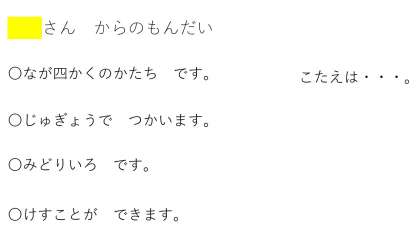 さん　からのもんだい
〇なが四かくのかたち　です。
こたえは・・・。
〇じゅぎょうで　つかいます。
〇みどりいろ　です。
〇けすことが　できます。